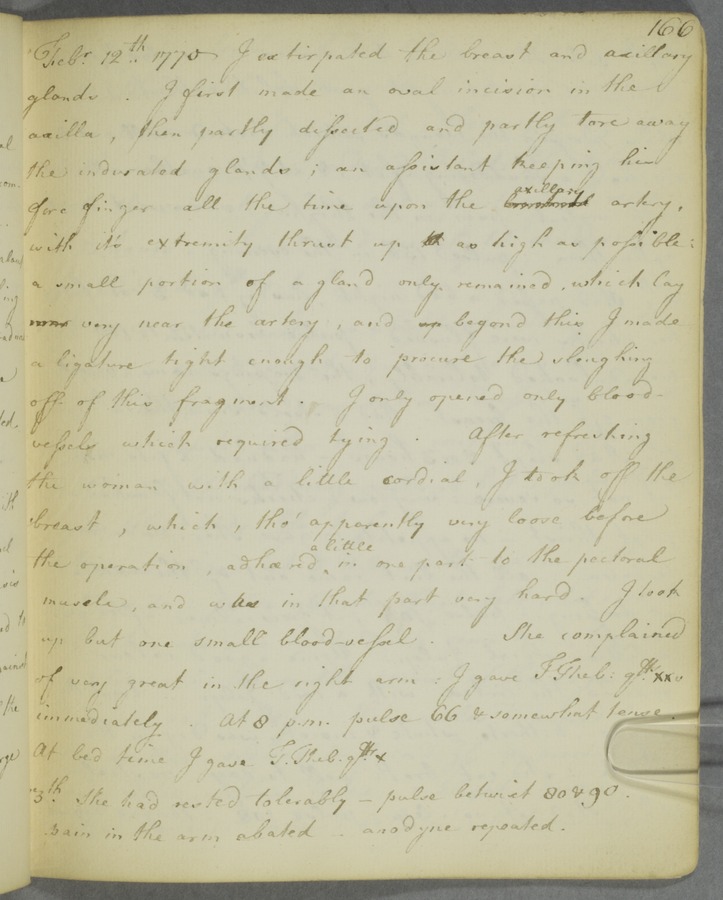 166
Febr. 12th. 1770 I extirpated the breast and axillary
glands. I first made an oval incision in the
axilla, then partly dissected and partly tore away
the indurated glands; an assistant keeping his
fore finger all the time upon the axillary artery,
with it's extremity thrust up as high as possible:
a small portion of a gland only remained, which lay
very near the artery, and beyond this I made
a ligature tight enough to procure the sloughing
off of this fragment. I only opened only blood-
vessels which required tying. After refreshing
the woman with a little cordial, I took off the
breast, which, tho' apparently very loose before
the operation, adhered a little in one part to the pectoral
muscle, and was in that part very hard. I took
up but one small blood-vessel. She complained
of very great in the right arm: I gave T. Theb: gtt. xxv
immediately. At 8 p.m. pulse 66 & somewhat tense.
At bed time I gave T. Theb. gtt x
13th. She had rested tolerably – pulse betwixt 80 & 90.
pain in the arm abated – anodyne repeated.